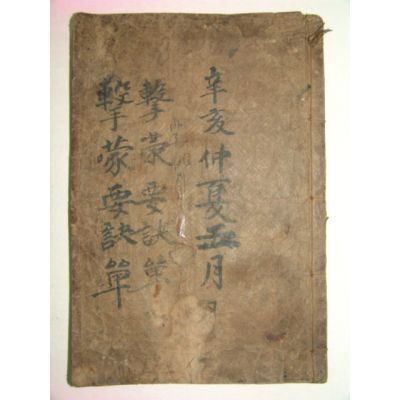 辛亥仲夏五月日
擊蒙要訣單
擊蒙要訣單